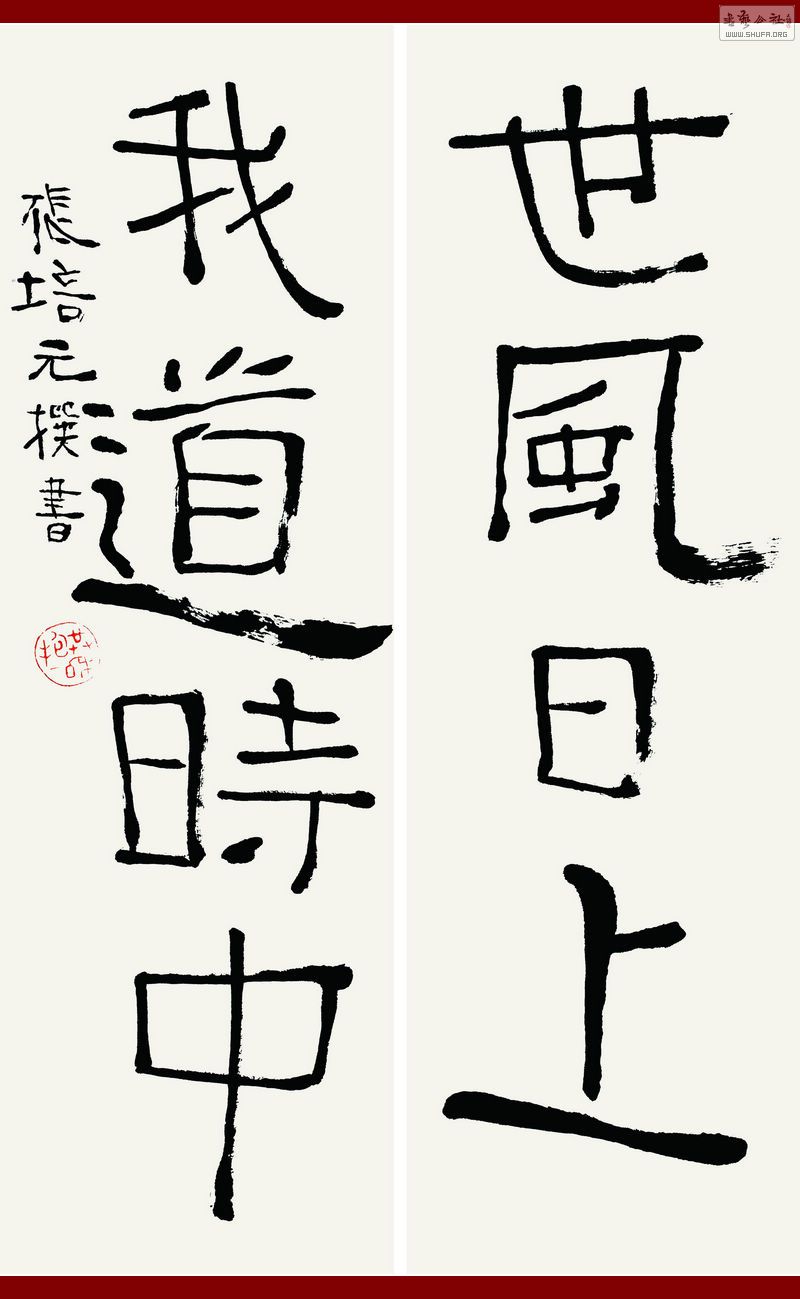 世風日上
我道時中
張培元撰書
WWW.SHUFA.ORG